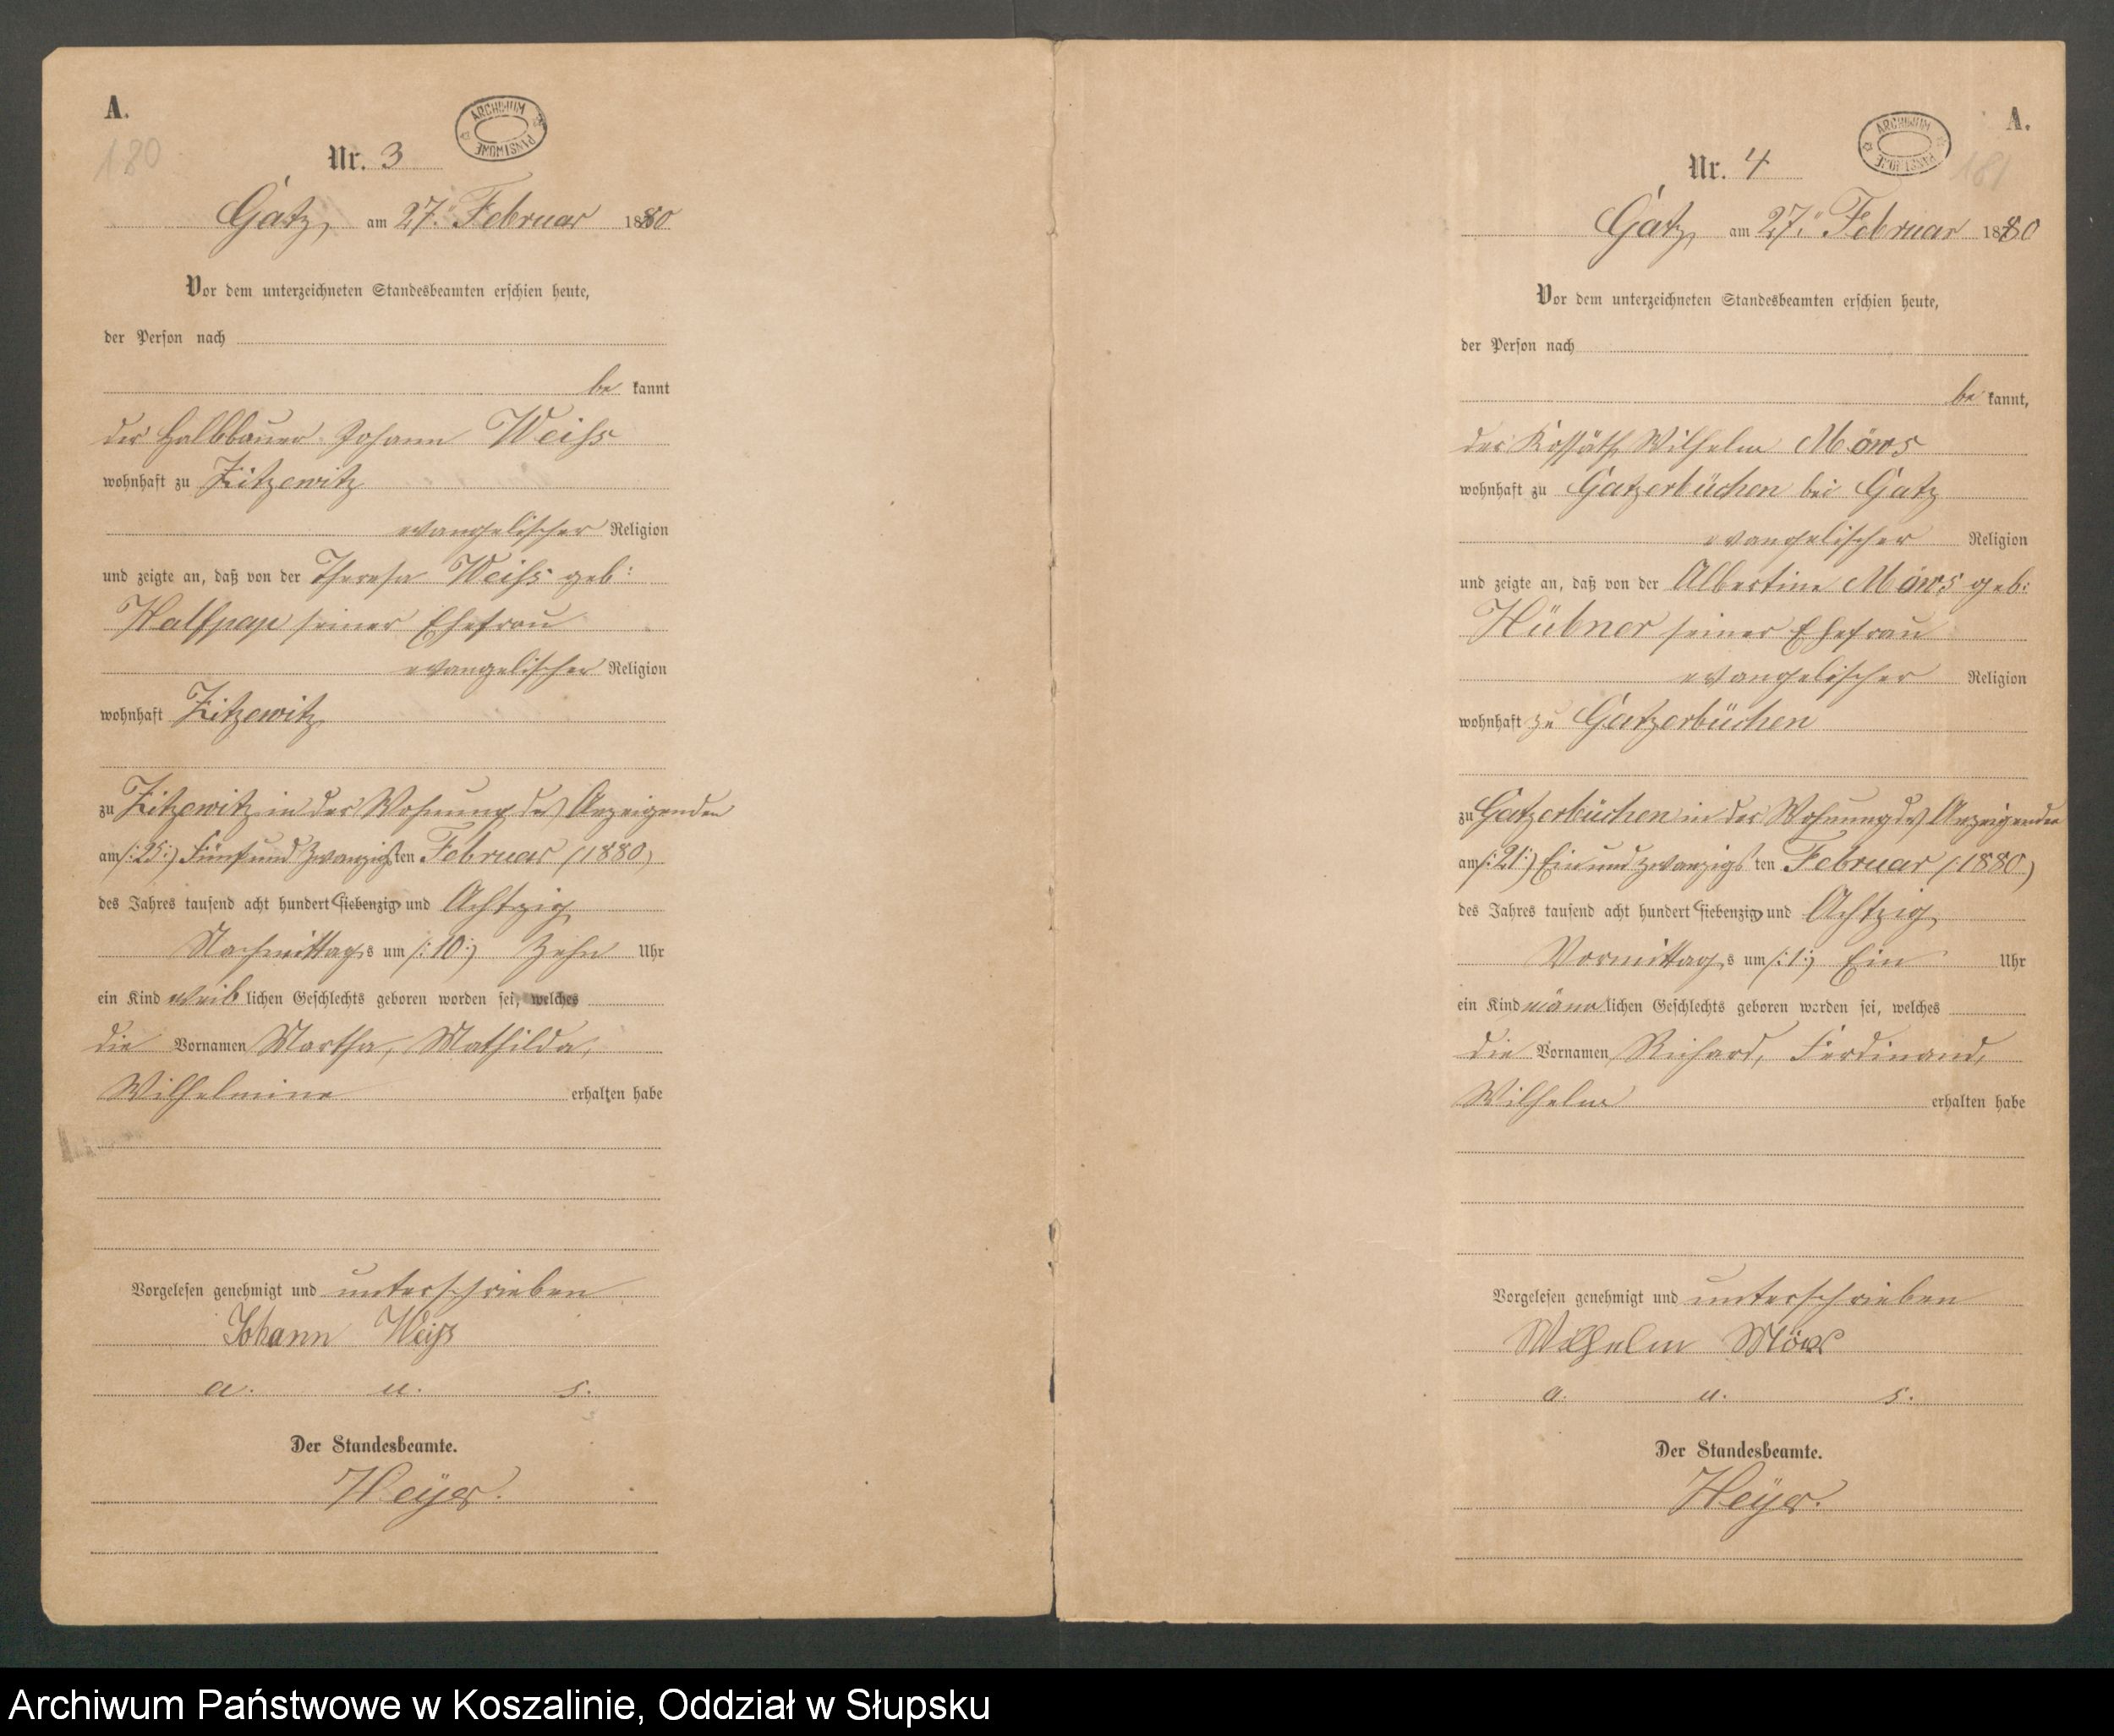 A.
180
ARCHIWUM PAŃSTWOWE
Nr. 3
Gatz, am 27. Februar 1880
Vor dem unterzeichneten Standesbeamten erschien heute,
der Person nach
be kannt
der Halbbauer Johann Weiss
wohnhaft zu Zitzewitz
evangelischer Religion
und zeigte an, daß von der Theresa Weiss geb:
Halfpap seiner Ehefrau
evangelischer Religion
wohnhaft Zitzewitz
zu Zitzewitz in der Wohnung des Anzeigenden
am /:25:/ Fünfundzwanzigsten Februar (1880)
des Jahres tausend acht hundert siebenzig und Achtzig
Nachmittags um /:10:/ Zehn Uhr
ein Kind weiblichen Geschlechts geboren worden sei, welches
die Vornamen Martha, Mathilda,
Wilhelmine erhalten habe
Vorgelesen genehmigt und unterschrieben
Johann Weiss
a. u. s.
Der Standesbeamte.
Heÿer.
A.
181
ARCHIWUM PAŃSTWOWE
Nr. 4
Gatz, am 27. Februar 1880
Vor dem unterzeichneten Standesbeamten erschien heute,
der Person nach
be kannt,
der Kossäth Wilhelm Möws
wohnhaft zu Gatzerbüchen bei Gatz
evangelischer Religion
und zeigte an, daß von der Albertine Möws geb:
Hübner seiner Ehefrau
evangelischer Religion
wohnhaft zu Gatzerbüchen
zu Gatzerbüchen in der Wohnung des Anzeigenden
am /:21:/ Ein und zwanzigsten Februar (1880)
des Jahres tausend acht hundert siebenzig und Achtzig
Vormittags um /:1:/ Ein Uhr
ein Kind mänlichen Geschlechts geboren worden sei, welches
die Vornamen Richard, Ferdinand,
Wilhelm erhalten habe
Vorgelesen genehmigt und unterschrieben
Wilhelm Möws
a. u. s.
Der Standesbeamte.
Heÿer.
Archiwum Państwowe w Koszalinie, Oddział w Słupsku